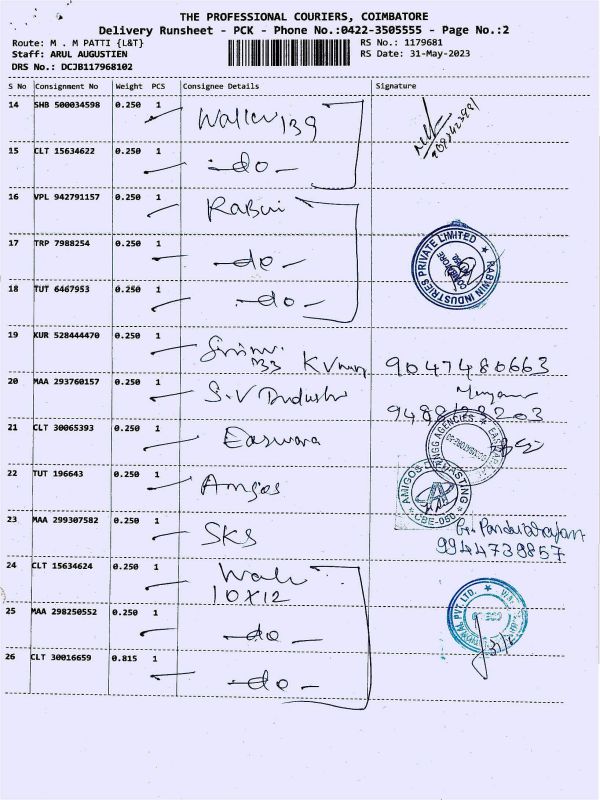 THE PROFESSIONAL COURIERS, COIMBATORE
Delivery Runsheet - PCK - Phone No.:0422-3505555 - Page No.:2
Route: M . M PATTI {L&T}
RS No.: 1179681
Staff: ARUL AUGUSTIEN
RS Date: 31-May-2023
DRS No.: DCJB117968102
S No Consignment No Weight PCS Consignee Details Signature
14 SHB 500034598 0.250 1
139
15 CLT 15634622 0.250 1 -do-
16 VPL 942791157 0.250 1
17 TRP 7988254 0.250 1 -do-
RABWIN INDUSTRIES PRIVATE LIMITED
18 TUT 6467953 0.250 1 -do-
19 KUR 528444470 0.250 1
9047480663
20 MAA 293760157 0.250 1 S.V
21 CLT 30065393 0.250 1 Easwara
AGENCIES
22 TUT 196643 0.250 1 Amigos
AMIGOS
CBE-050
23 MAA 299307582 0.250 1 SKS
9944739857
24 CLT 15634624 0.250 1
10X12
PVT LTD.
25 MAA 298250552 0.250 1 -do-
26 CLT 30016659 0.815 1 -do-